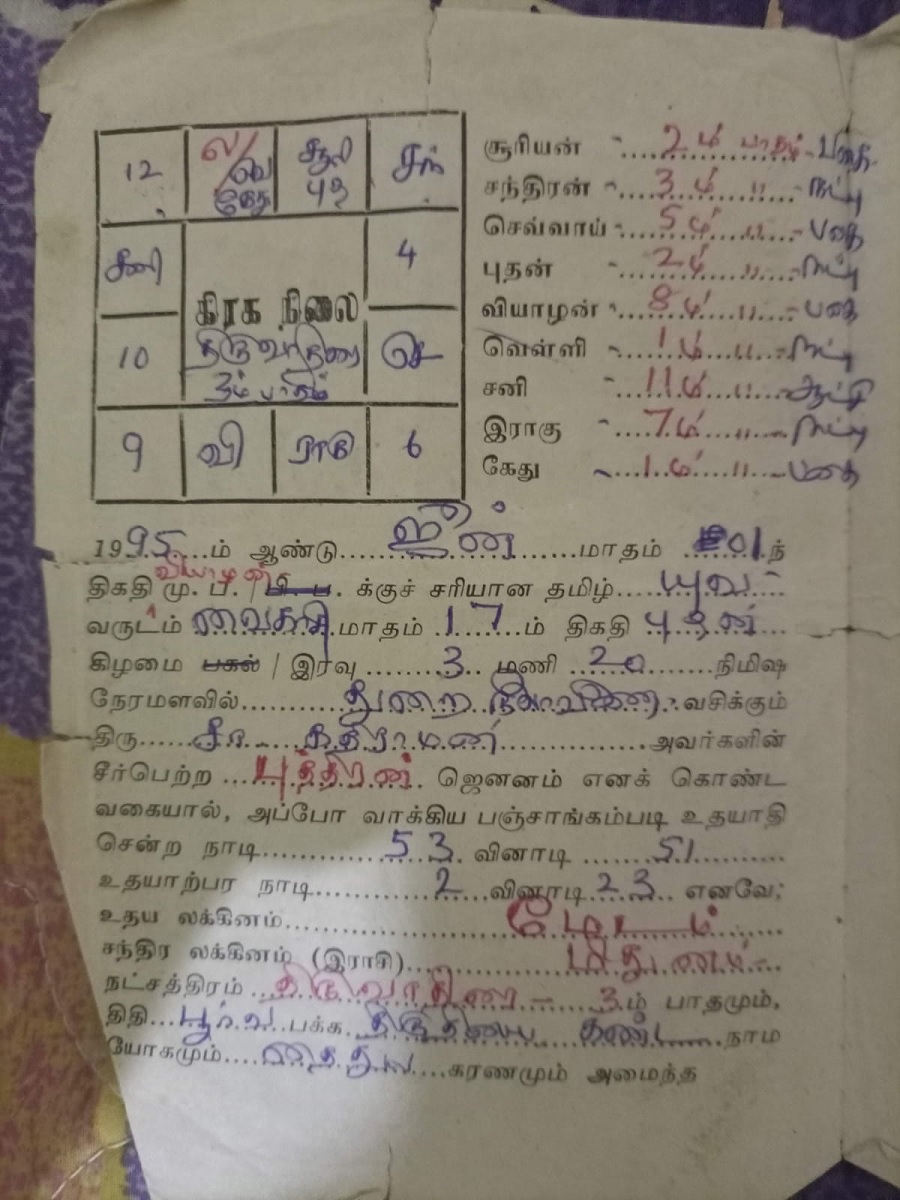 12 ல/ வெ கேது சூரி புத சந்
சனி 4
கிரக நிலை
10 திருவாதிரை 3ம் பாதம் செ
9 வி ராகு 6
சூரியன் - 2ம் பாதம் - பகை
சந்திரன் - 3ம் ,, - நட்பு
செவ்வாய் - 5ம் ,, - பகை
புதன் - 2ம் ,, - நட்பு
வியாழன் - 8ம் ,, - பகை
வெள்ளி - 1ம் ,, - நட்பு
சனி - 11ம் ,, - ஆட்சி
இராகு - 7ம் ,, - நட்பு
கேது - 1ம் ,, - பகை
1995ம் ஆண்டு ஜுன் மாதம் 01ந்
வியாழன்
திகதி மு. ப. / பி. ப. க்குச் சரியான தமிழ் யுவ
வருடம் வைகாசி மாதம் 17ம் திகதி புதன்
கிழமை பகல் / இரவு 3 மணி 20 நிமிஷ
நேரமளவில் துறை வசிக்கும்
திரு அவர்களின்
சீர்பெற்ற புத்திரன் ஜெனனம் எனக் கொண்ட
வகையால், அப்போ வாக்கிய பஞ்சாங்கம்படி உதயாதி
சென்ற நாடி 53 வினாடி 51
உதயாற்பர நாடி 2 வினாடி 23 எனவே;
உதய லக்கினம் மேடம்
சந்திர லக்கினம் (இராசி) மிதுனம்
நட்சத்திரம் திருவாதிரை - 3ம் பாதமும்,
திதி பூர்வ பக்க திருதியை கண்ட நாம
யோகமும் கரணமும் அமைந்த